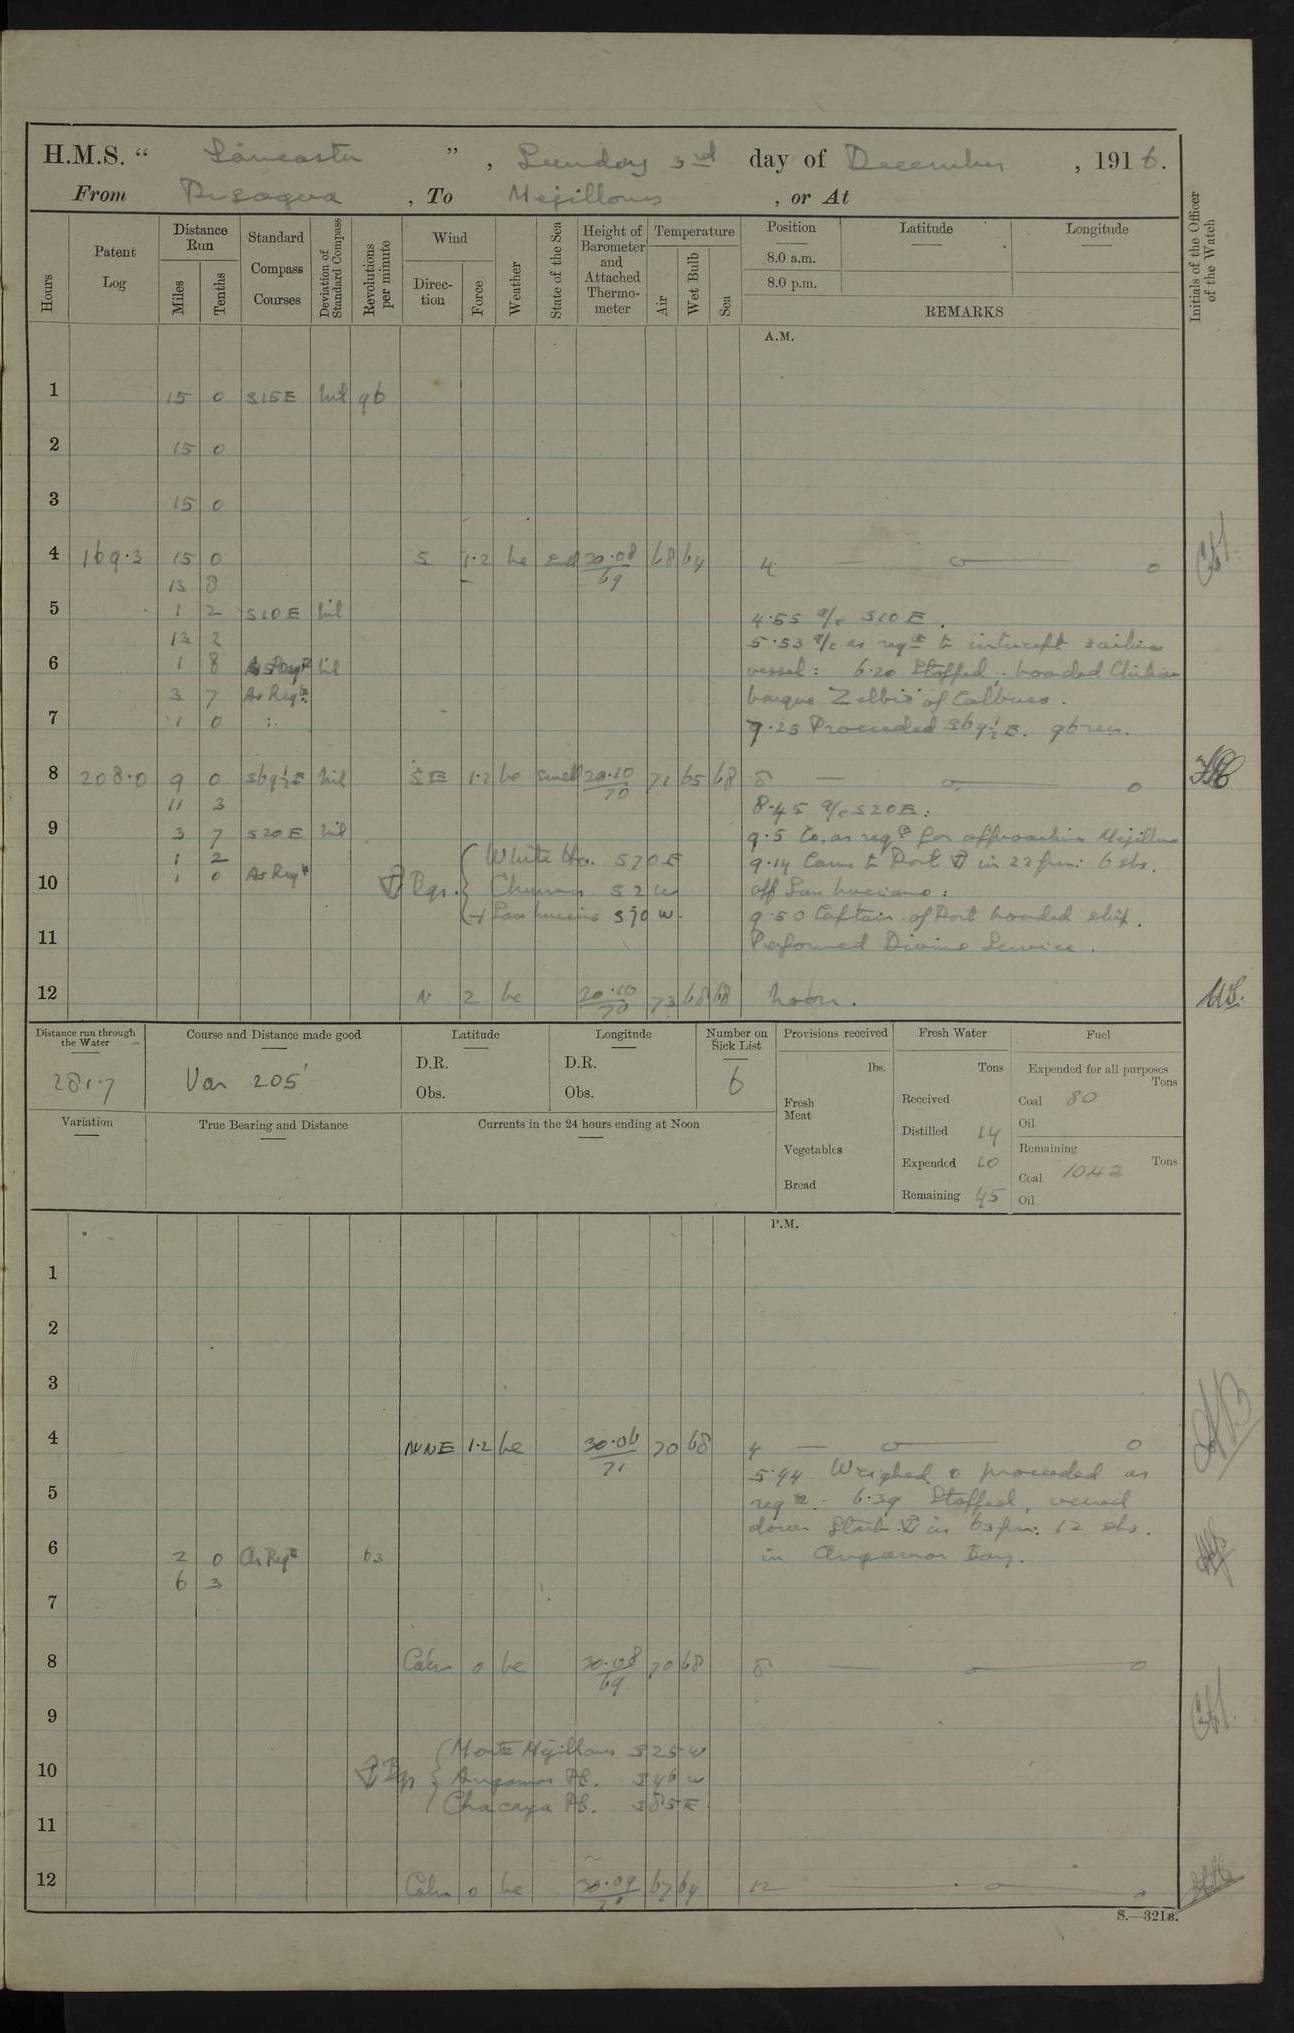 H.M.S. “ Lancaster ” , Sunday 3rd day of December , 1916.
From Pisagua , To Mejillones , or At
Hours
Patent Log
Distance Run
Miles
Tenths
Standard Compass Courses
Deviation of Standard Compass
Revolutions per minute
Wind
Direction
Force
Weather
State of the Sea
Height of Barometer and Attached Thermometer
Temperature
Air
Wet Bulb
Sea
Position
8.0 a.m.
8.0 p.m.
Latitude
Longitude
REMARKS
Initials of the Officer of the Watch
A.M.
1 15 0 S15E Nil 96
2 15 0
3 15 0
4 169.3 15 0 S 1.2 bc 30.08/69 68 64 4
13 8
5 1 2 S10E Nil 4.55 a/c S10E.
13 2 5.53 a/c as reqd to intercept sailing
6 1 8 Nil vessel: 6.20 Stopped: boarded Chilian
3 7 As Reqd barque "Zelbio" of Calbuco.
7 1 0 : 7.25 Proceeded S69½E. 96 revs.
8 208.0 9 0 S69½E Nil SE 1.2 bc smell 30.10/70 71 65 68 8
11 3 8.45 a/c S20E:
9 3 7 S20E Nil 9.5 Co. as reqd for approaching Mejillones
1 2 White Ho. S70E 9.14 Came to Port ⚓ in 22 fms: 6 shs.
10 1 0 As Reqd ⚓ Bgs. S2W off San Luciano:
+ San Luciano S70W. 9.50 Captain of Port boarded ship.
11 Performed Divine Service.
12 N 2 bc 30.10/70 73 68 68 Noon.
Distance run through the Water
281.7
Course and Distance made good
Var 205'
Latitude
D.R.
Obs.
Longitude
D.R.
Obs.
Number on Sick List
6
Provisions received
lbs.
Fresh Meat
Vegetables
Bread
Fresh Water
Tons
Received
Distilled 14
Expended 10
Remaining 45
Fuel
Expended for all purposes
Tons
Coal 80
Oil
Remaining
Tons
Coal 1042
Oil
Variation
True Bearing and Distance
Currents in the 24 hours ending at Noon
P.M.
1
2
3
4 NNE 1.2 bc 30.06/71 70 68 4
5.44 Weighed & proceeded as
5 reqd. 6.39 Stopped, veered
down Starb. ⚓ in 63 fms: 12 shs.
6 2 0 As Reqd 63 in Angamos Bay.
6 3
7
8 Calm 0 bc 30.08/69 70 68 8
9
Monte Mejillones S25W
10 ⚓ Bgs Angamos Pt. S46W
Chacaya Pt. S85E
11
12 Calm 0 bc 30.09 67 64 12
S.—321B.